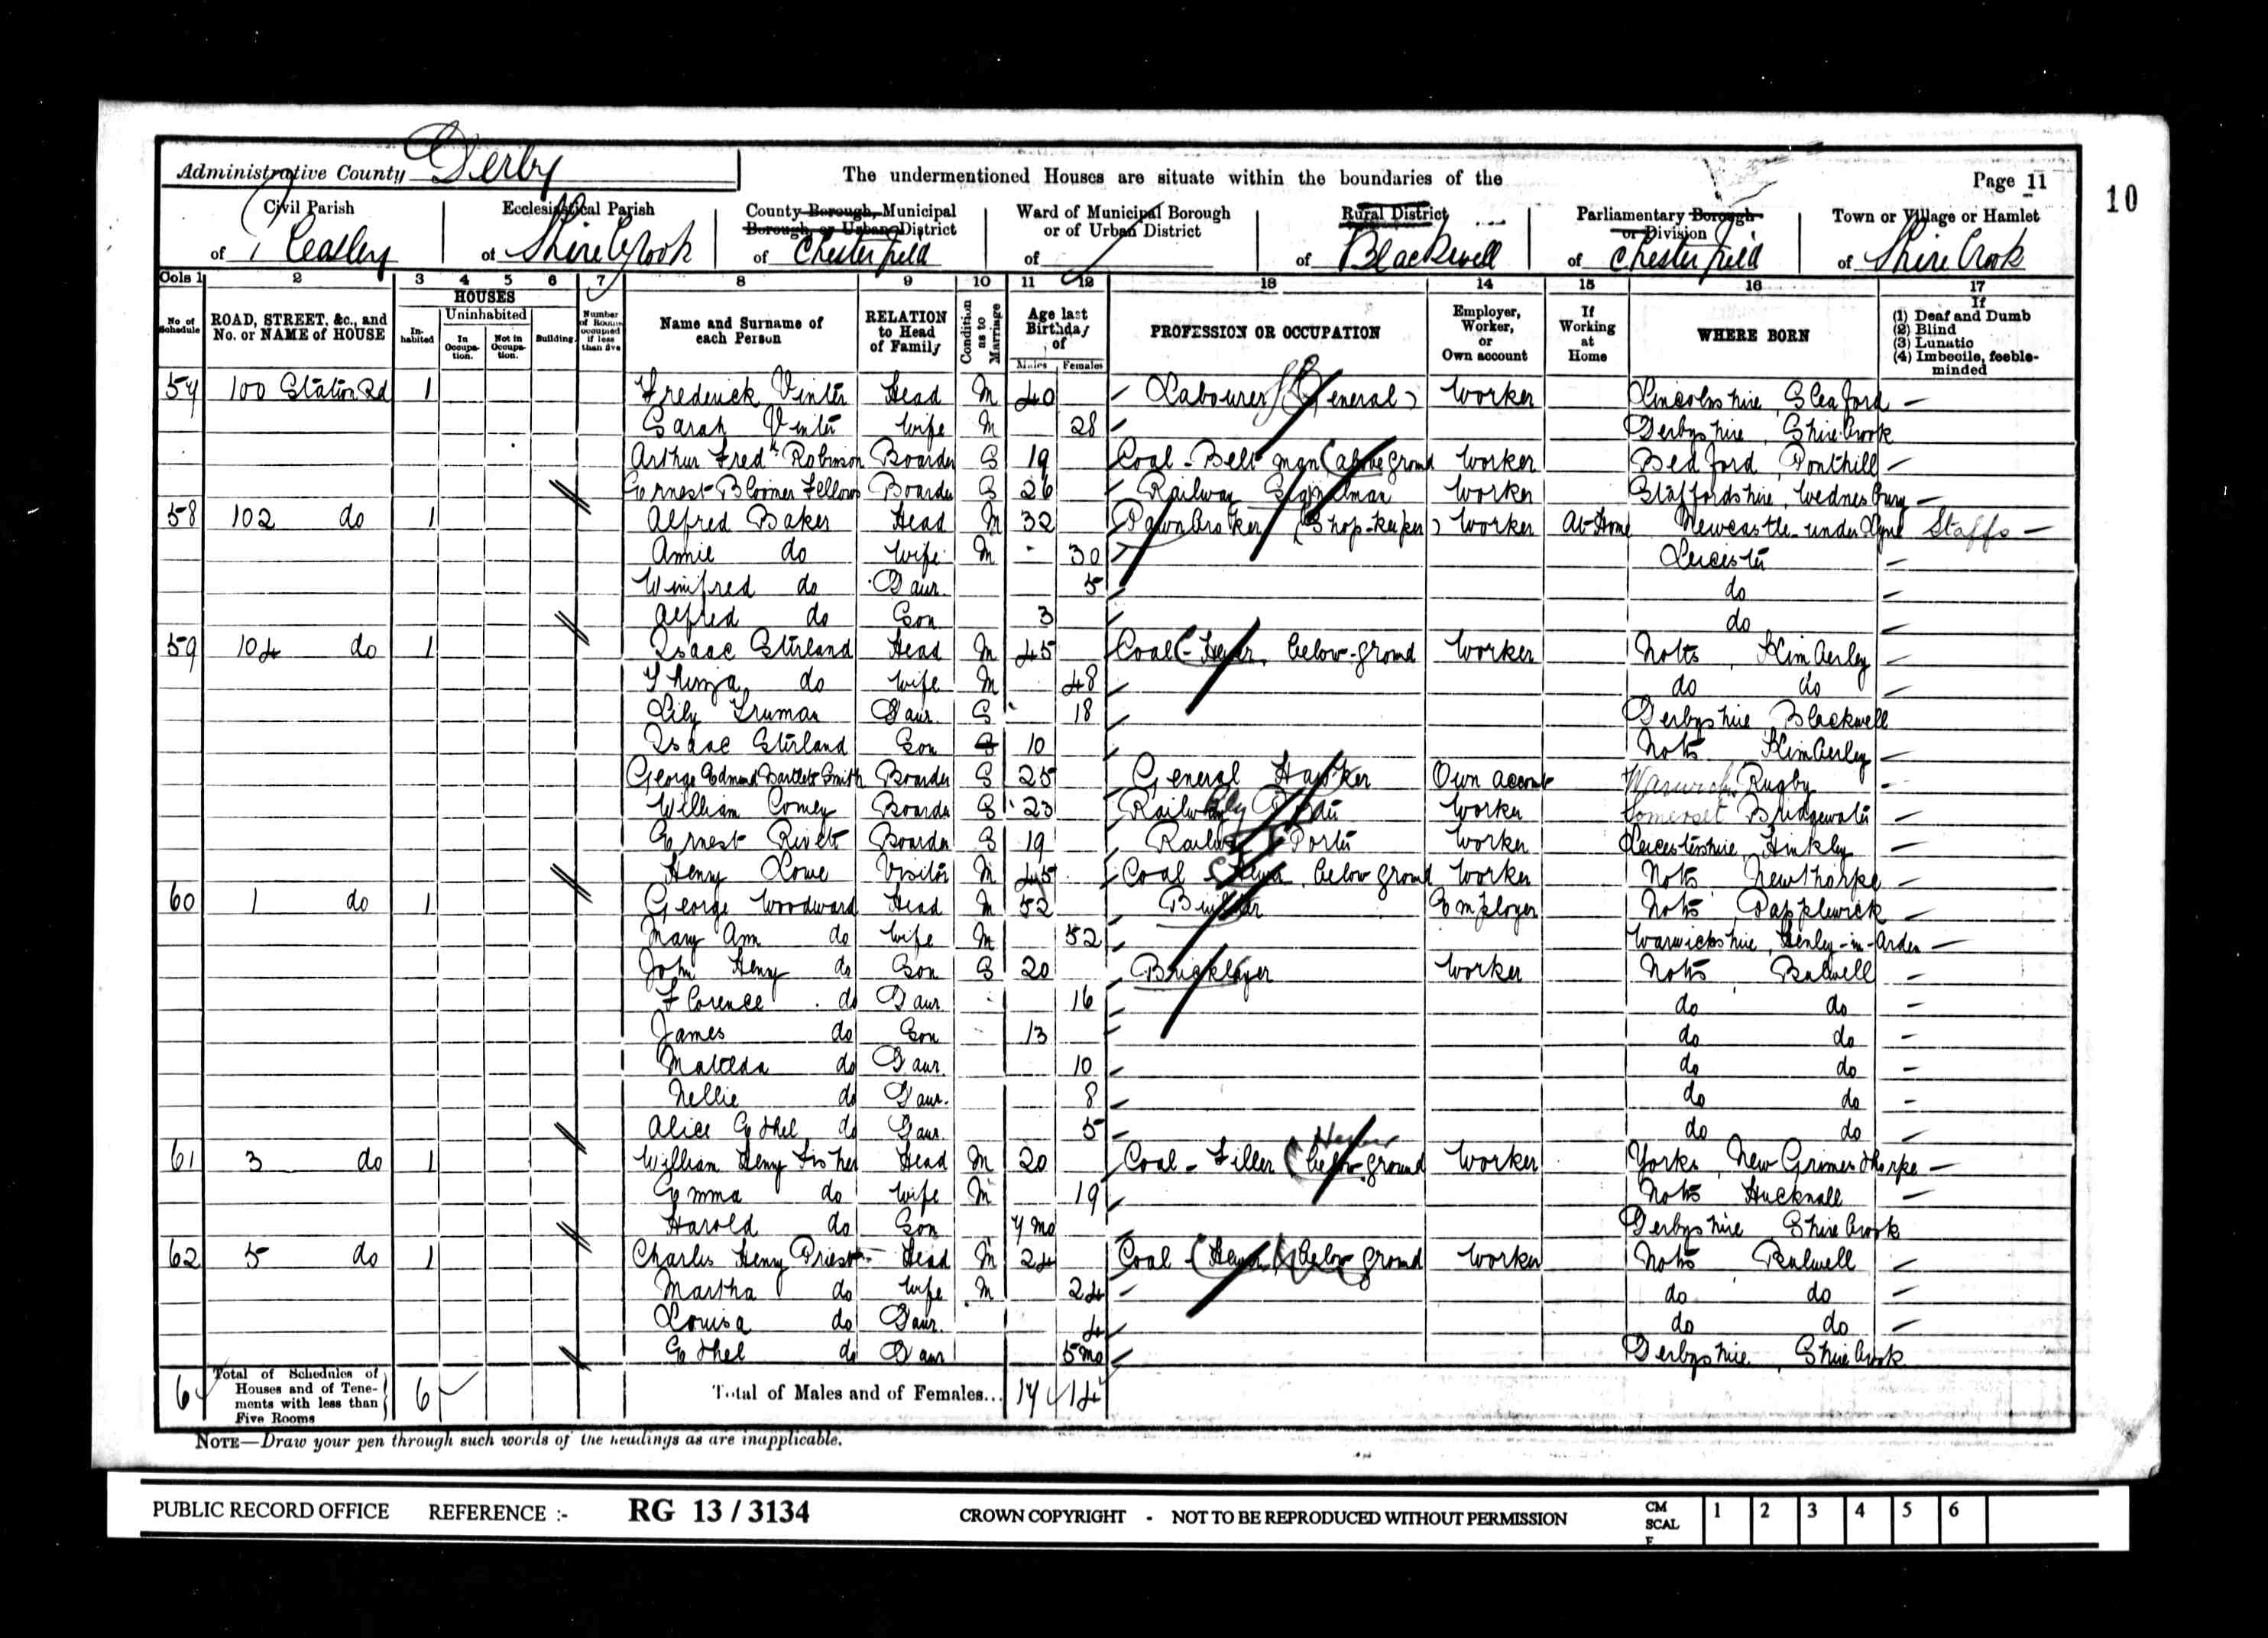 Administrative County Derby
The undermentioned Houses are situate within the boundaries of the
Page 11
10
Civil Parish of Pleasley
Ecclesiastical Parish of Shirebrook
County Borough, Municipal Borough or Urban District of Chesterfield
Ward of Municipal Borough or of Urban District of
Rural District of Blackwell
Parliamentary Borough or Division of Chesterfield
Town or Village or Hamlet of Shire Brook
Cols 1 2 3 4 5 6 7 8 9 10 11 12 13 14 15 16 17
No of Schedule
ROAD, STREET, &c., and No. or NAME of HOUSE
HOUSES
Inhabited
Uninhabited
In Occupation.
Not in Occupation.
Building.
Number of Rooms occupied if less than five
Name and Surname of each Person
RELATION to Head of Family
Condition as to Marriage
Age last Birthday of
Males Females
PROFESSION OR OCCUPATION
Employer, Worker, or Own account
If Working at Home
WHERE BORN
If
(1) Deaf and Dumb
(2) Blind
(3) Lunatic
(4) Imbecile, feeble-minded
57 100 Station Rd 1 Frederick Vinter Head M 40 Labourer (General) Worker Lincolnshire, Sleaford
Sarah Vinter Wife M 28 Derbyshire, Shirebrook
Arthur Fredk Robinson Boarder S 19 Coal - Belt man (above ground Worker Bedford
Ernest Bloomer Fellows Boarder S 26 Railway Signalman Worker Staffordshire, Wednesbury
58 102 do 1 Alfred Baker Head M 32 Pawnbroker (Shop-keeper) Worker At Home Newcastle-under-Lyne Staffs
Annie do Wife M 30 Leicester
Winifred do Daur 5 do
Alfred do Son 3 do
59 104 do 1 Isaac Stirland Head M 45 Coal-Hewer, below-ground Worker Notts, Kimberley
Thirza do Wife M 48 do do
Lily Truman Daur S 18 Derbyshire Blackwell
Isaac Stirland Son S 10 Notts Kimberley
George Edmund Bartlett Smith Boarder S 25 General Hawker Own account Warwicks Rugby
William Comey Boarder S 23 Railway Porter Worker Somerset Bridgewater
Ernest Rivett Boarder S 19 Railway Porter Worker Leicestershire, Hinkley
Henry Lowe Visitor M 45 Coal Hewer, below ground Worker Notts, Newthorpe
60 1 do 1 George Woodward Head M 52 Builder Employer Notts Papplewick
Mary Ann do Wife M 52 Warwickshire, Henley-in-Arden
John Henry do Son S 20 Bricklayer Worker Notts Bulwell
Florence do Daur 16 do do
James do Son 13 do do
Matilda do Daur. 10 do do
Nellie do Daur. 8 do do
Alice Ethel do Daur 5 do do
61 3 do 1 William Henry Fisher Head M 20 Coal - Filler (below ground Hewer Worker Yorks, New Grimesthorpe
Emma do Wife M 19 Notts Hucknall
Harold do Son 7 mo Derbyshire Shirebrook
62 5 do 1 Charles Henry Priest Head M 24 Coal - (Hewer) below ground Worker Notts Bulwell
Martha do Wife M 24 do do
Louisa do Daur. 4 do do
Ethel do Daur 5 mo Derbyshire, Shirebrook
6 Total of Schedules of Houses and of Tenements with less than Five Rooms 6 Total of Males and of Females... 17 14
NOTE—Draw your pen through such words of the headings as are inapplicable.
PUBLIC RECORD OFFICE REFERENCE :- RG 13 / 3134 CROWN COPYRIGHT - NOT TO BE REPRODUCED WITHOUT PERMISSION
CM SCALE 1 2 3 4 5 6